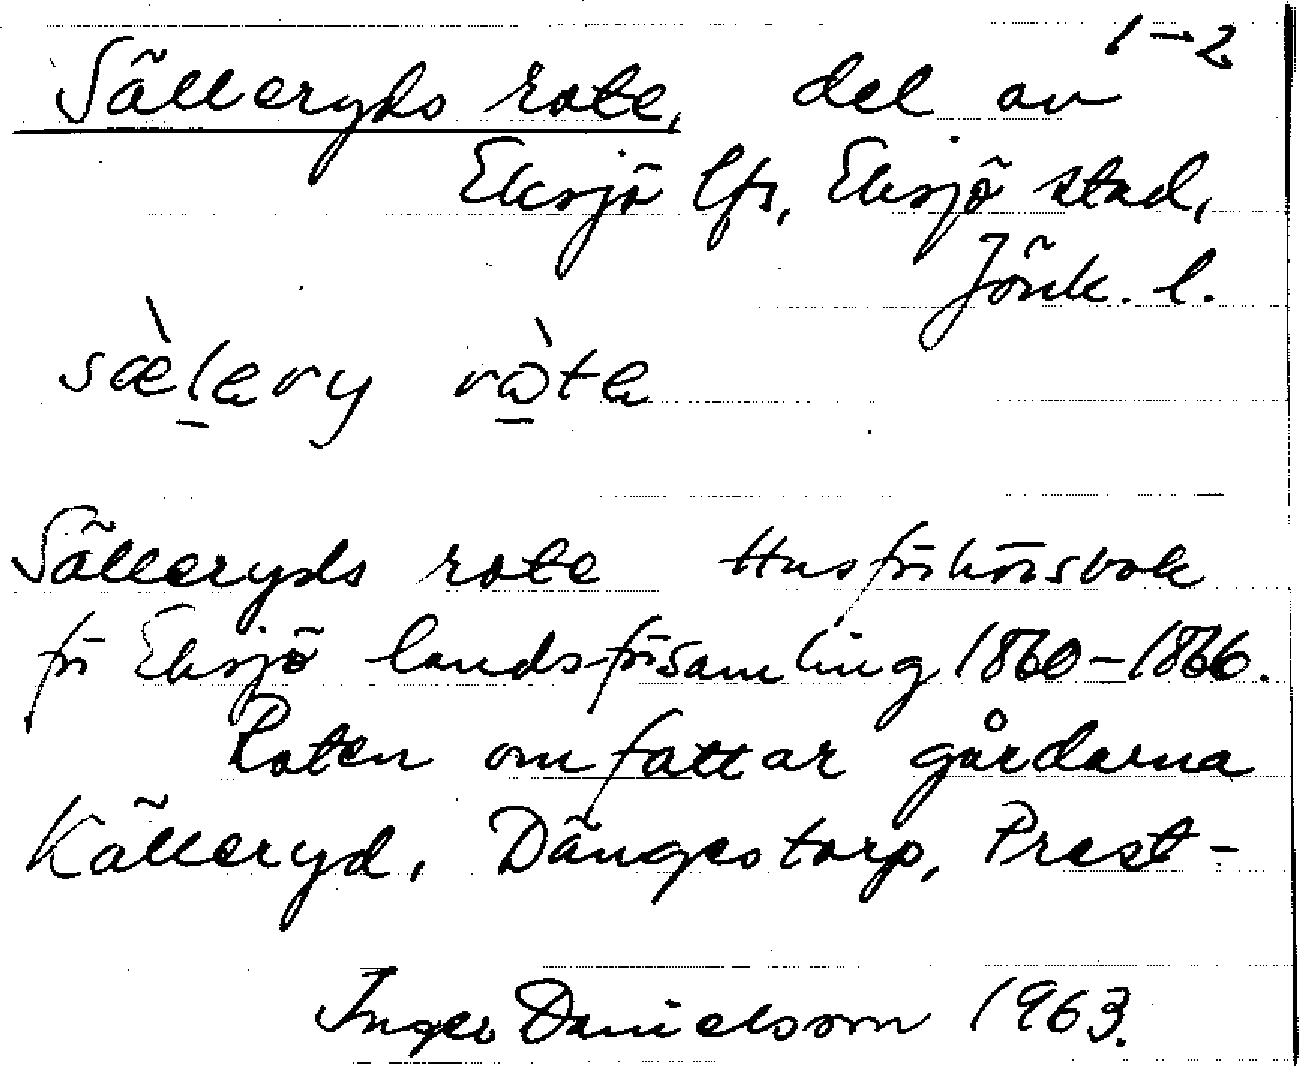 1–2
Sälleryds rote, del av
Eksjö lfs, Eksjö stad,
Jönk. l.
sæ̀lery ròte
Sälleryds rote Husförhörsbok
för Eksjö landsförsamling 1860–1866.
Roten omfattar gårdarna
Källeryd, Dängestorp, Prest-
Inger Danielsson 1963.